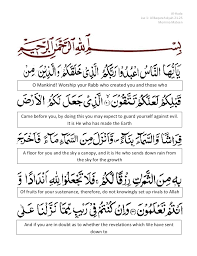 بِسْمِ اللّٰهِ الرَّحْمٰنِ الرَّحِيْمِ
يٰۤاَيُّهَا النَّاسُ اعْبُدُوْا رَبَّكُمُ الَّذِيْ خَلَقَكُمْ وَالَّذِيْنَ مِنْ
O Mankind! Worship your Rabb who created you and those who
قَبْلِكُمْ لَعَلَّكُمْ تَتَّقُوْنَ الَّذِيْ جَعَلَ لَكُمُ الْاَرْضَ
Came before you, by doing this you may expect to guard yourself against evil.
It is He who has made the Earth
فِرَاشًا وَّالسَّمَآءَ بِنَآءً وَّاَنْزَلَ مِنَ السَّمَآءِ مَآءً فَاَخْرَجَ
A floor for you and the sky a canopy, and it is He who sends down rain from
the sky for the growth
بِهٖ مِنَ الثَّمَرٰتِ رِزْقًا لَّكُمْ فَلَا تَجْعَلُوْا لِلّٰهِ اَنْدَادًا وَّ
Of fruits for your sustenance, therefore, do not knowingly set up rivals to Allah
اَنْتُمْ تَعْلَمُوْنَ وَاِنْ كُنْتُمْ فِيْ رَيْبٍ مِّمَّا نَزَّلْنَا عَلٰى
And if you are in doubt as to whether the revelations which We have sent
down to